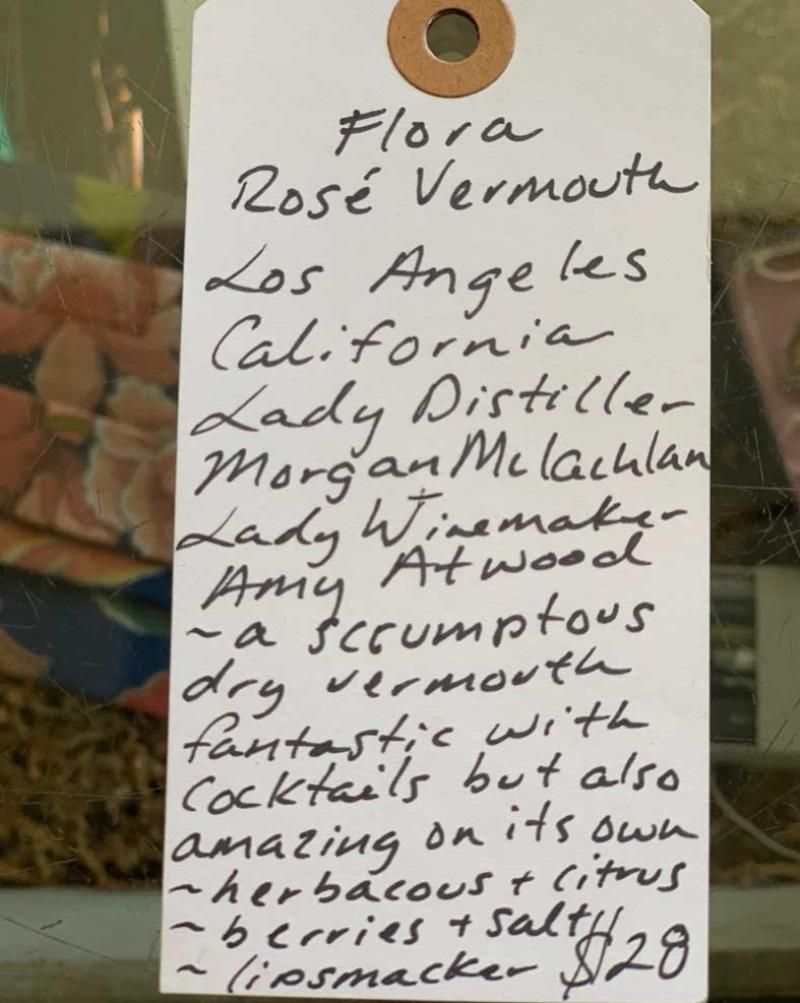 Flora
Rosé Vermouth
Los Angeles
California
Lady Distiller
Morgan Mclachlan
Lady Winemaker
Amy Atwood
~a scrumptous
dry vermouth
fantastic with
cocktails but also
amazing on its own
~herbacous + citrus
~berries + salty
~lipsmacker $28